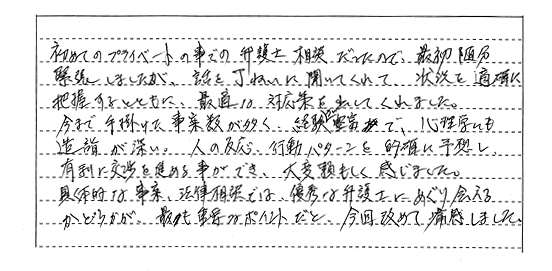 初めてのプライベートの事での弁護士相談だったので、最初随分
緊張しましたが、話を丁ねいに聞いてくれて、状況を適確に
把握するとともに、最適な対応策を出してくれました。
今まで手掛けた事案数が多く、経験豊富で、心理学にも
造詣が深い。人の反応、行動パターンを的確に予想し、
有利に交渉を進める事ができ、大変頼もしく感じました。
具体的な事案、法律相談では、優秀な弁護士にめぐり会える
かどうかが、最も重要なポイントだと、今回改めて痛感しました。